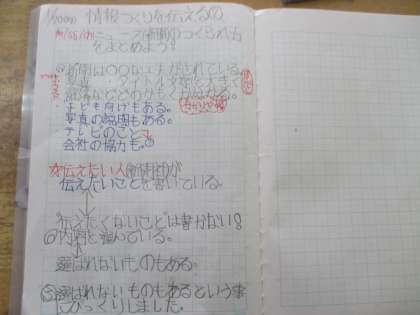 情報つくりを伝えるの
ニュース(新聞)のつくられ方
をまとめよう!
新聞は〇〇な工夫がされている。
写真 タイトル文字を大きく
子ども向けもある。
写真の範囲もある。
テレビのこと
会社の協力も。
伝えたい人(新聞社)が
伝えたいことを書いている。
伝えたくないことは書かない!
内容を選んでいる。
選ばれないものもある。
選ばれないものもあるという事
にびっくりしました。